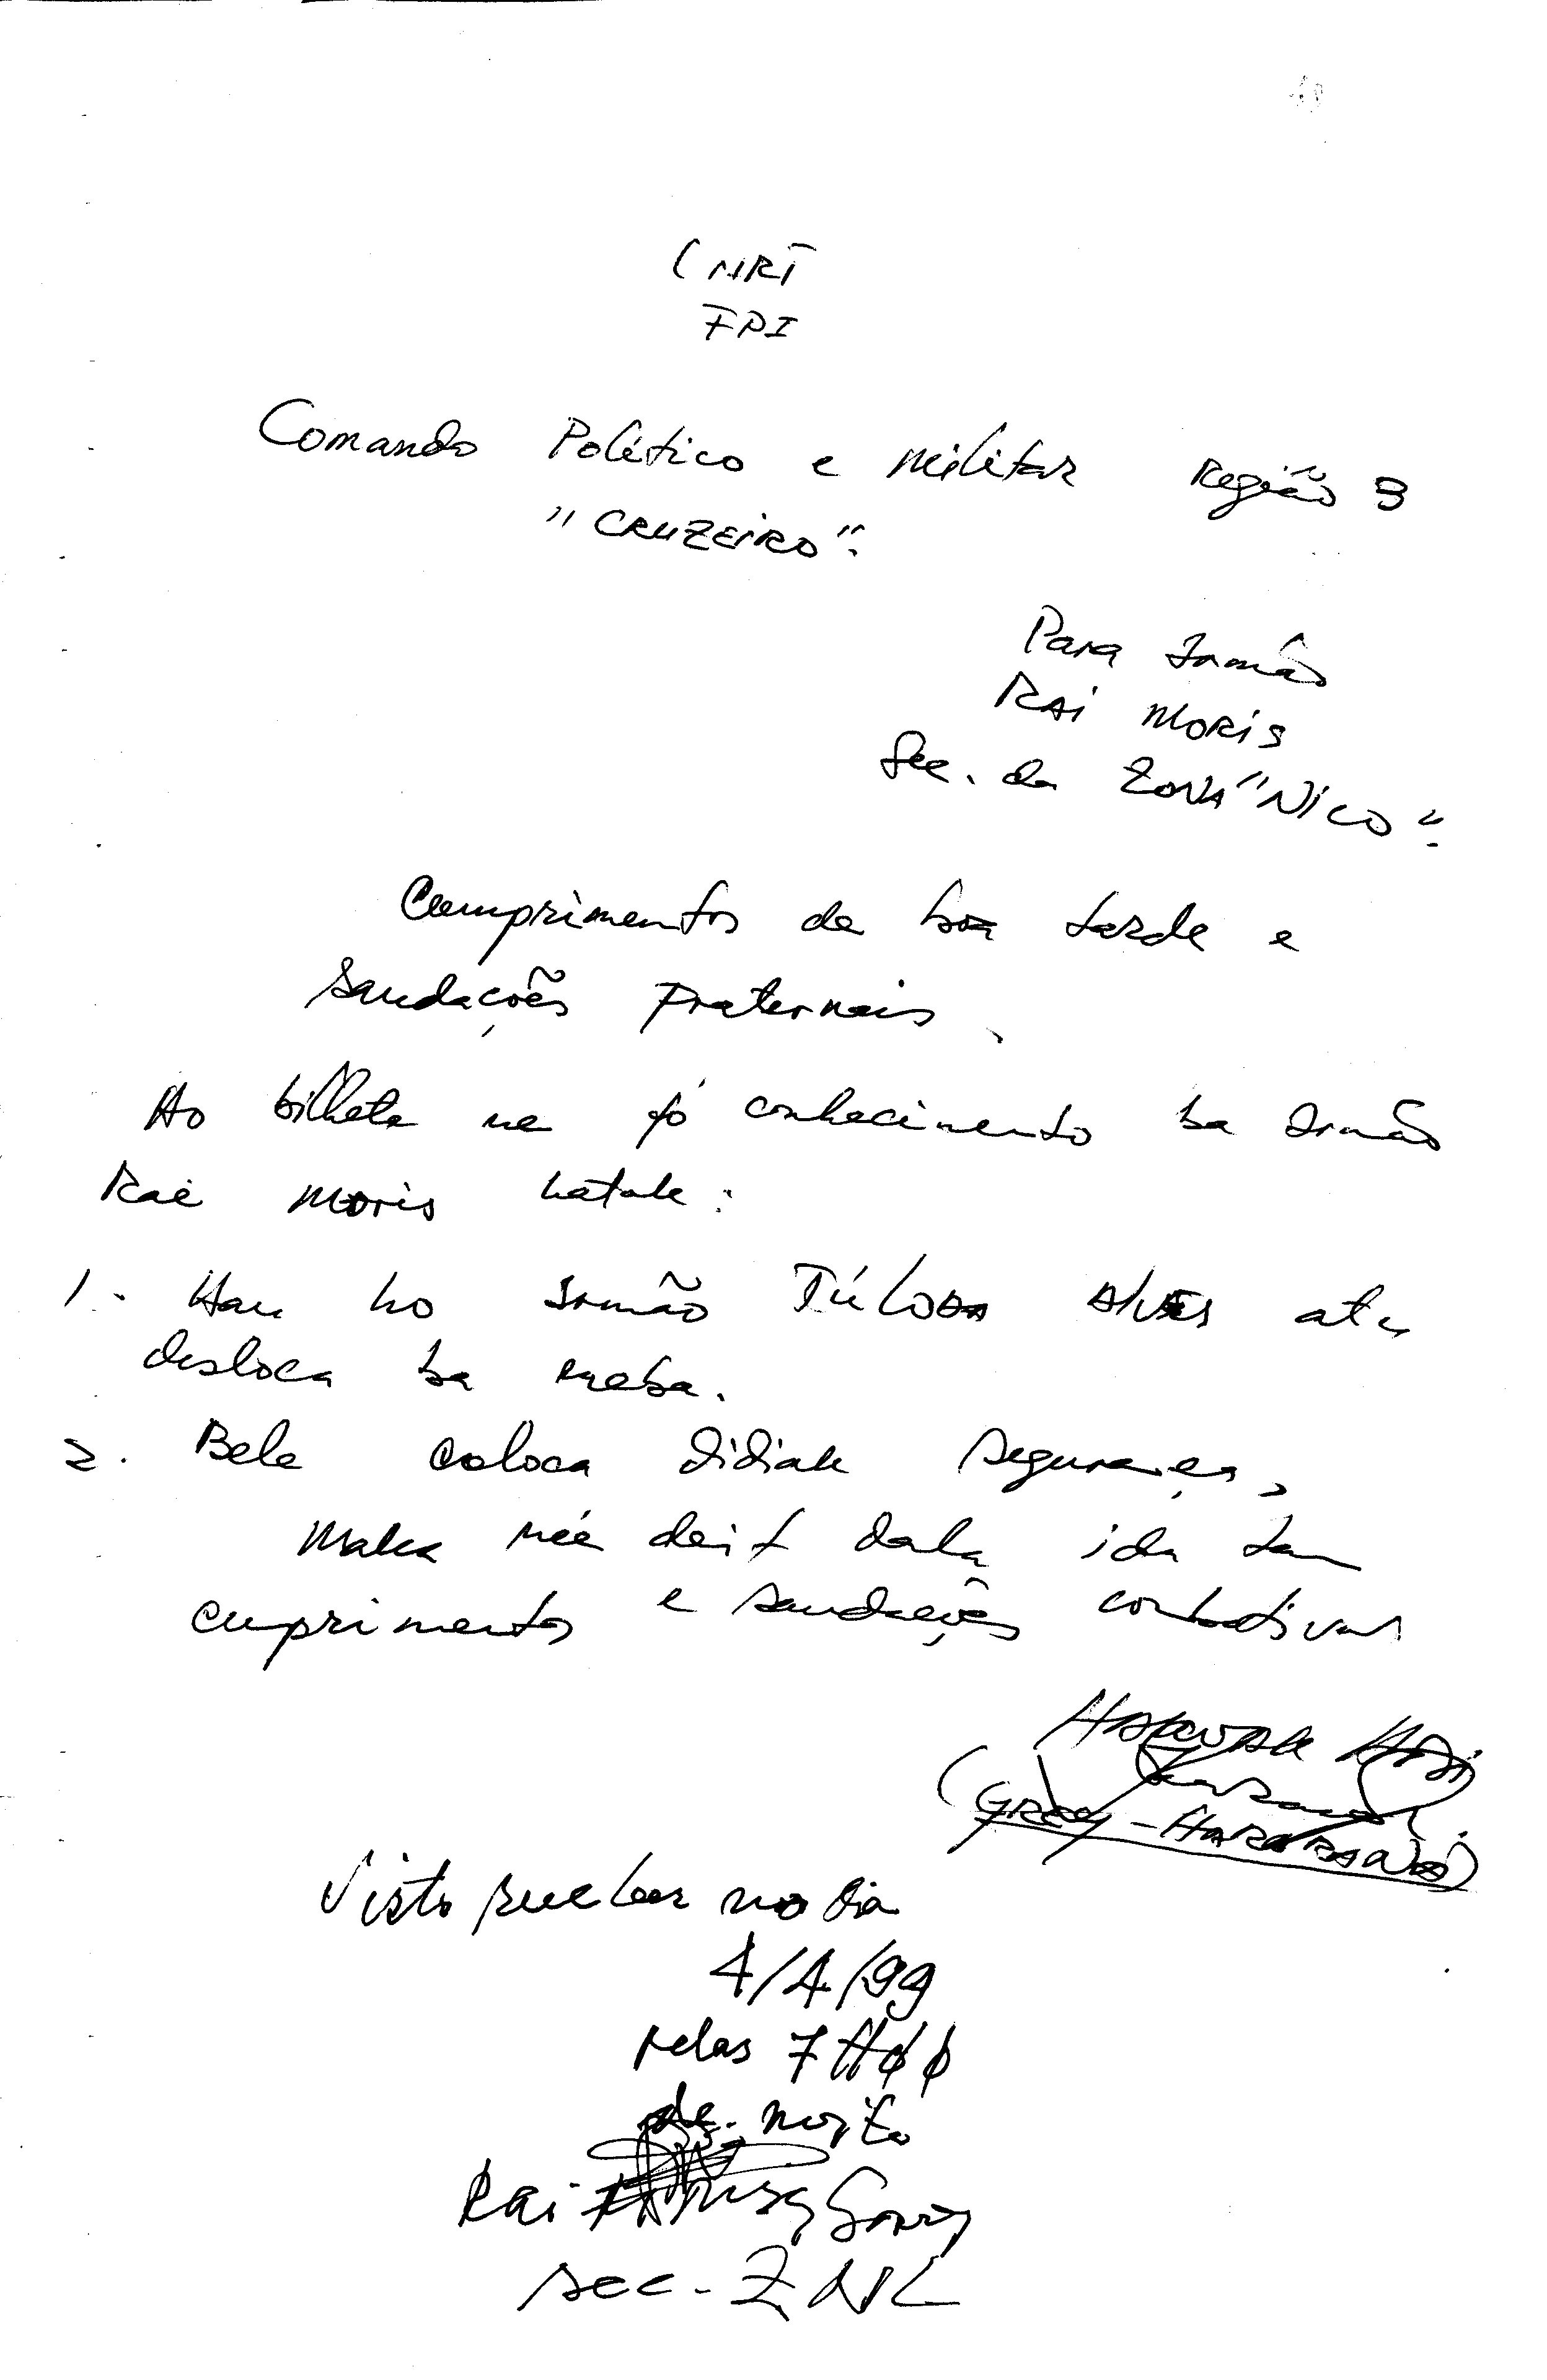 CNRT
FPI
Comando Político e Militar Região 3
"CRUZEIRO".
Para Irmão
RAI MORIS
Sec. da ZONA "NICO".
Cumprimentos de boa tarde e
saudações fraternais.
Ho bilhete ne fó conhecimento ba Irmão
Rai Moris katak:
1. Hau ho Irmão Alves atu
desloca ba neba.
2. Bele coloca didiak segurança,
Maka neé deit dala ida tan
cuprimentos e saudações
HAKUDAK
(GREY-HARARANA)
Visto no dia
4/4/99
pelas 7H00
de noite
Rai
sec - ZNL